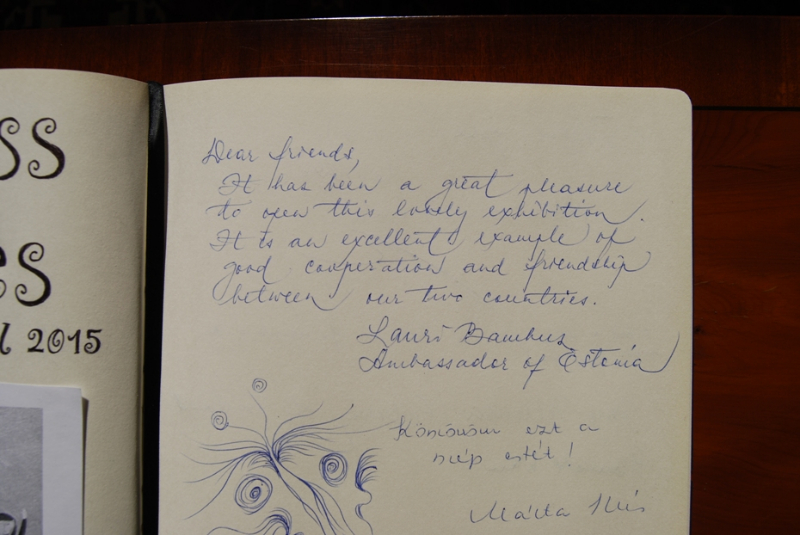 ss
es
l 2015
Dear friends,
It has been a great pleasure
to open this lovely exhibition.
It is an excellent example of
good cooperation and friendship
between our two countries.
Lauri Bambus
Ambassador of Estonia
Köszönöm ezt a
szép estét!
Márta